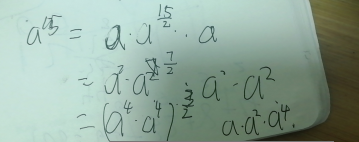 a^15 = a · a^{15/2} · a
= a^2 · a^{7/2} a^2 · a^2
= (a^4 · a^4)^{3/2} a · a^2 · a^4.